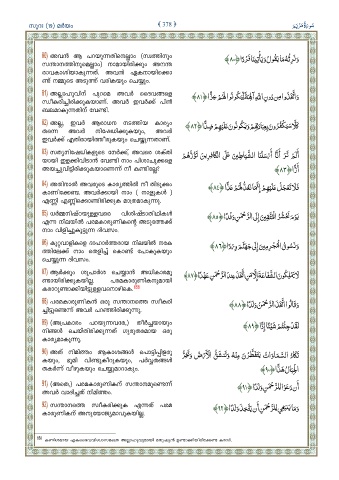 സൂറ (19) മർയം
﴿ 378 ﴾
سُورَةُ مَرْيَم
80) അവൻ ആ പറയുന്നതിനെല്ലാം (സ്വത്തിനും
സന്താനത്തിനുമെല്ലാം) നാമായിരിക്കും അനന്ത
രാവകാശിയാകുന്നത്. അവൻ ഏകനായിക്കൊ
ണ്ട് നമ്മുടെ അടുത്ത് വരികയും ചെയ്യും.
وَنَرِثُهُ مَا يَقُولُ وَيَأْتِينَا فَرْدًا ﴿٨٠﴾
81) അല്ലാഹുവിന് പുറമെ അവർ ദൈവങ്ങളെ
സ്വീകരിച്ചിരിക്കുകയാണ്. അവർ ഇവർക്ക് പിൻ
ബലമാകുന്നതിന് വേണ്ടി.
وَاتَّخَذُوا مِنْ دُونِ اللَّهِ آلِهَةً لِيَكُونُوا لَهُمْ عِزًّا ﴿٨١﴾
82) അല്ല, ഇവർ ആരാധന നടത്തിയ കാര്യം
തന്നെ അവർ നിഷേധിക്കുകയും, അവർ
ഇവർക്ക് എതിരായിത്തീരുകയും ചെയ്യുന്നതാണ്.
كَلَّا سَيَكْفُرُونَ بِعِبَادَتِهِمْ وَيَكُونُونَ عَلَيْهِمْ ضِدًّا ﴿٨٢﴾
83) സത്യനിഷേധികളുടെ നേർക്ക്, അവരെ ശക്തി
യായി ഇളക്കിവിടാൻ വേണ്ടി നാം പിശാചുക്കളെ
അയച്ചുവിട്ടിരിക്കുകയാണെന്ന് നീ കണ്ടില്ലേ?
أَلَمْ تَرَ أَنَّا أَرْسَلْنَا الشَّيَاطِينَ عَلَى الْكَافِرِينَ تَؤُزُّهُمْ
أَزًّا ﴿٨٣﴾
84) അതിനാൽ അവരുടെ കാര്യത്തിൽ നീ തിടുക്കം
കാണിക്കേണ്ട. അവർക്കായി നാം ( നാളുകൾ )
എണ്ണി എണ്ണിക്കൊണ്ടിരിക്കുക മാത്രമാകുന്നു.
فَلَا تَعْجَلْ عَلَيْهِمْ إِنَّمَا نَعُدُّ لَهُمْ عَدًّا ﴿٨٤﴾
85) ധർമ്മനിഷ്ഠയുള്ളവരെ വിശിഷ്ടാതിഥികൾ
എന്ന നിലയിൽ പരമകാരുണികന്റെ അടുത്തേക്ക്
നാം വിളിച്ചുകൂട്ടുന്ന ദിവസം.
يَوْمَ نَحْشُرُ الْمُتَّقِينَ إِلَى الرَّحْمَٰنِ وَفْدًا ﴿٨٥﴾
86) കുറ്റവാളികളെ ദാഹാർത്തരായ നിലയിൽ നരക
ത്തിലേക്ക് നാം തെളിച്ച് കൊണ്ട് പോകുകയും
ചെയ്യുന്ന ദിവസം.
وَنَسُوقُ الْمُجْرِمِينَ إِلَىٰ جَهَنَّمَ وِرْدًا ﴿٨٦﴾
87) ആർക്കും ശുപാർശ ചെയ്യാൻ അധികാരമു
ണ്ടായിരിക്കുകയില്ല. പരമകാരുണികനുമായി
കരാറുണ്ടാക്കിയിട്ടുള്ളവനൊഴികെ.
لَا يَمْلِكُونَ الشَّفَاعَةَ إِلَّا مَنِ اتَّخَذَ عِنْدَ الرَّحْمَٰنِ عَهْدًا ﴿٨٧﴾
88) പരമകാരുണികൻ ഒരു സന്താനത്തെ സ്വീകരി
ച്ചിട്ടുണ്ടെന്ന് അവർ പറഞ്ഞിരിക്കുന്നു.
وَقَالُوا اتَّخَذَ الرَّحْمَٰنُ وَلَدًا ﴿٨٨﴾
89) (അപ്രകാരം പറയുന്നവരേ,) തീർച്ചയായും
നിങ്ങൾ ചെയ്തിരിക്കുന്നത് ഗുരുതരമായ ഒരു
കാര്യമാകുന്നു.
لَقَدْ جِئْتُمْ شَيْئًا إِدًّا ﴿٨٩﴾
90) അത് നിമിത്തം ആകാശങ്ങൾ പൊട്ടിപ്പിളരു
കയും, ഭൂമി വിണ്ടുകീറുകയും, പർവ്വതങ്ങൾ
തകർന്ന് വീഴുകയും ചെയ്യുമാറാകും.
تَكَادُ السَّمَاوَاتُ يَتَفَطَّرْنَ مِنْهُ وَتَنْشَقُّ الْأَرْضُ وَتَخِرُّ
الْجِبَالُ هَدًّا ﴿٩٠﴾
91) (അതെ,) പരമകാരുണികന് സന്താനമുണ്ടെന്ന്
അവർ വാദിച്ചത് നിമിത്തം.
أَنْ دَعَوْا لِلرَّحْمَٰنِ وَلَدًا ﴿٩١﴾
92) സന്താനത്തെ സ്വീകരിക്കുക എന്നത് പരമ
കാരുണികന് അനുയോജ്യമാവുകയില്ല.
وَمَا يَنْبَغِي لِلرَّحْمَٰنِ أَنْ يَتَّخِذَ وَلَدًا ﴿٩٢﴾